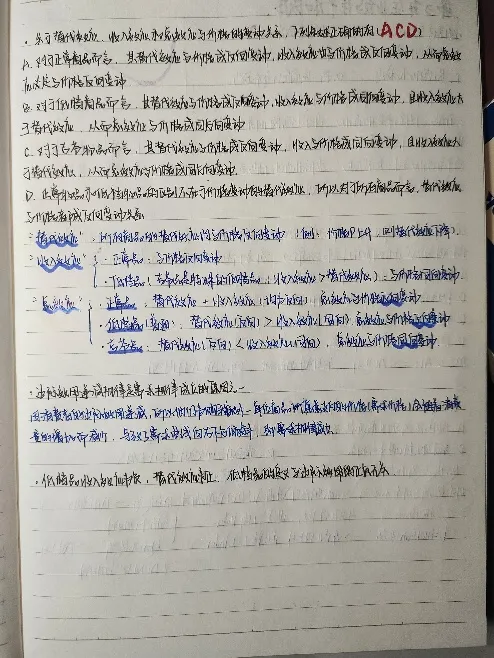 ·关于替代效应、收入效应和总效应与价格的变动关系，下列叙述正确的有(ACD)
A. 对于正常商品而言，其替代效应与价格成反向变动，收入效应也与价格成反向变动，从而总效
应必定与价格反向变动
B. 对于低档商品而言，其替代效应与价格成反向变动，收入效应与价格成同向变动，且收入效应大
于替代效应，从而总效应与价格成同方向变动
C. 对于吉芬物品而言，其替代效应与价格成反向变动，收入与价格成同向变动，且收入效应大
于替代效应，从而总效应与价格成同方向变动
D. 正常物品和低档物品的区别不在于价格变动的替代效应，所以对于所有商品而言，替代效应
与价格都成反向变动关系
"替代效应"：所有商品的替代效应均与价格反向变动 (例：价格P上升，则替代效应下降)
"收入效应"：·正常品：与价格反向变动
·低档品(吉芬品是特殊的低档品：收入效应>替代效应)：与价格同向变动
"总效应"：·正常品：替代效应+收入效应(均反向)，总效应与价格反向变动
·低档品(普通)：替代效应(反向)>收入效应(同向)，总效应与价格反向变动
·吉芬品：替代效应(反向)<收入效应(同向)，总效应与价格同向变动
·边际效用递减规律是需求规律成立的原因之一
因消费者的边际效用递减，所以他们
量的增加而减少，导致了需求曲线向右下方倾斜，即需求规律成立
·低档品收入效应为